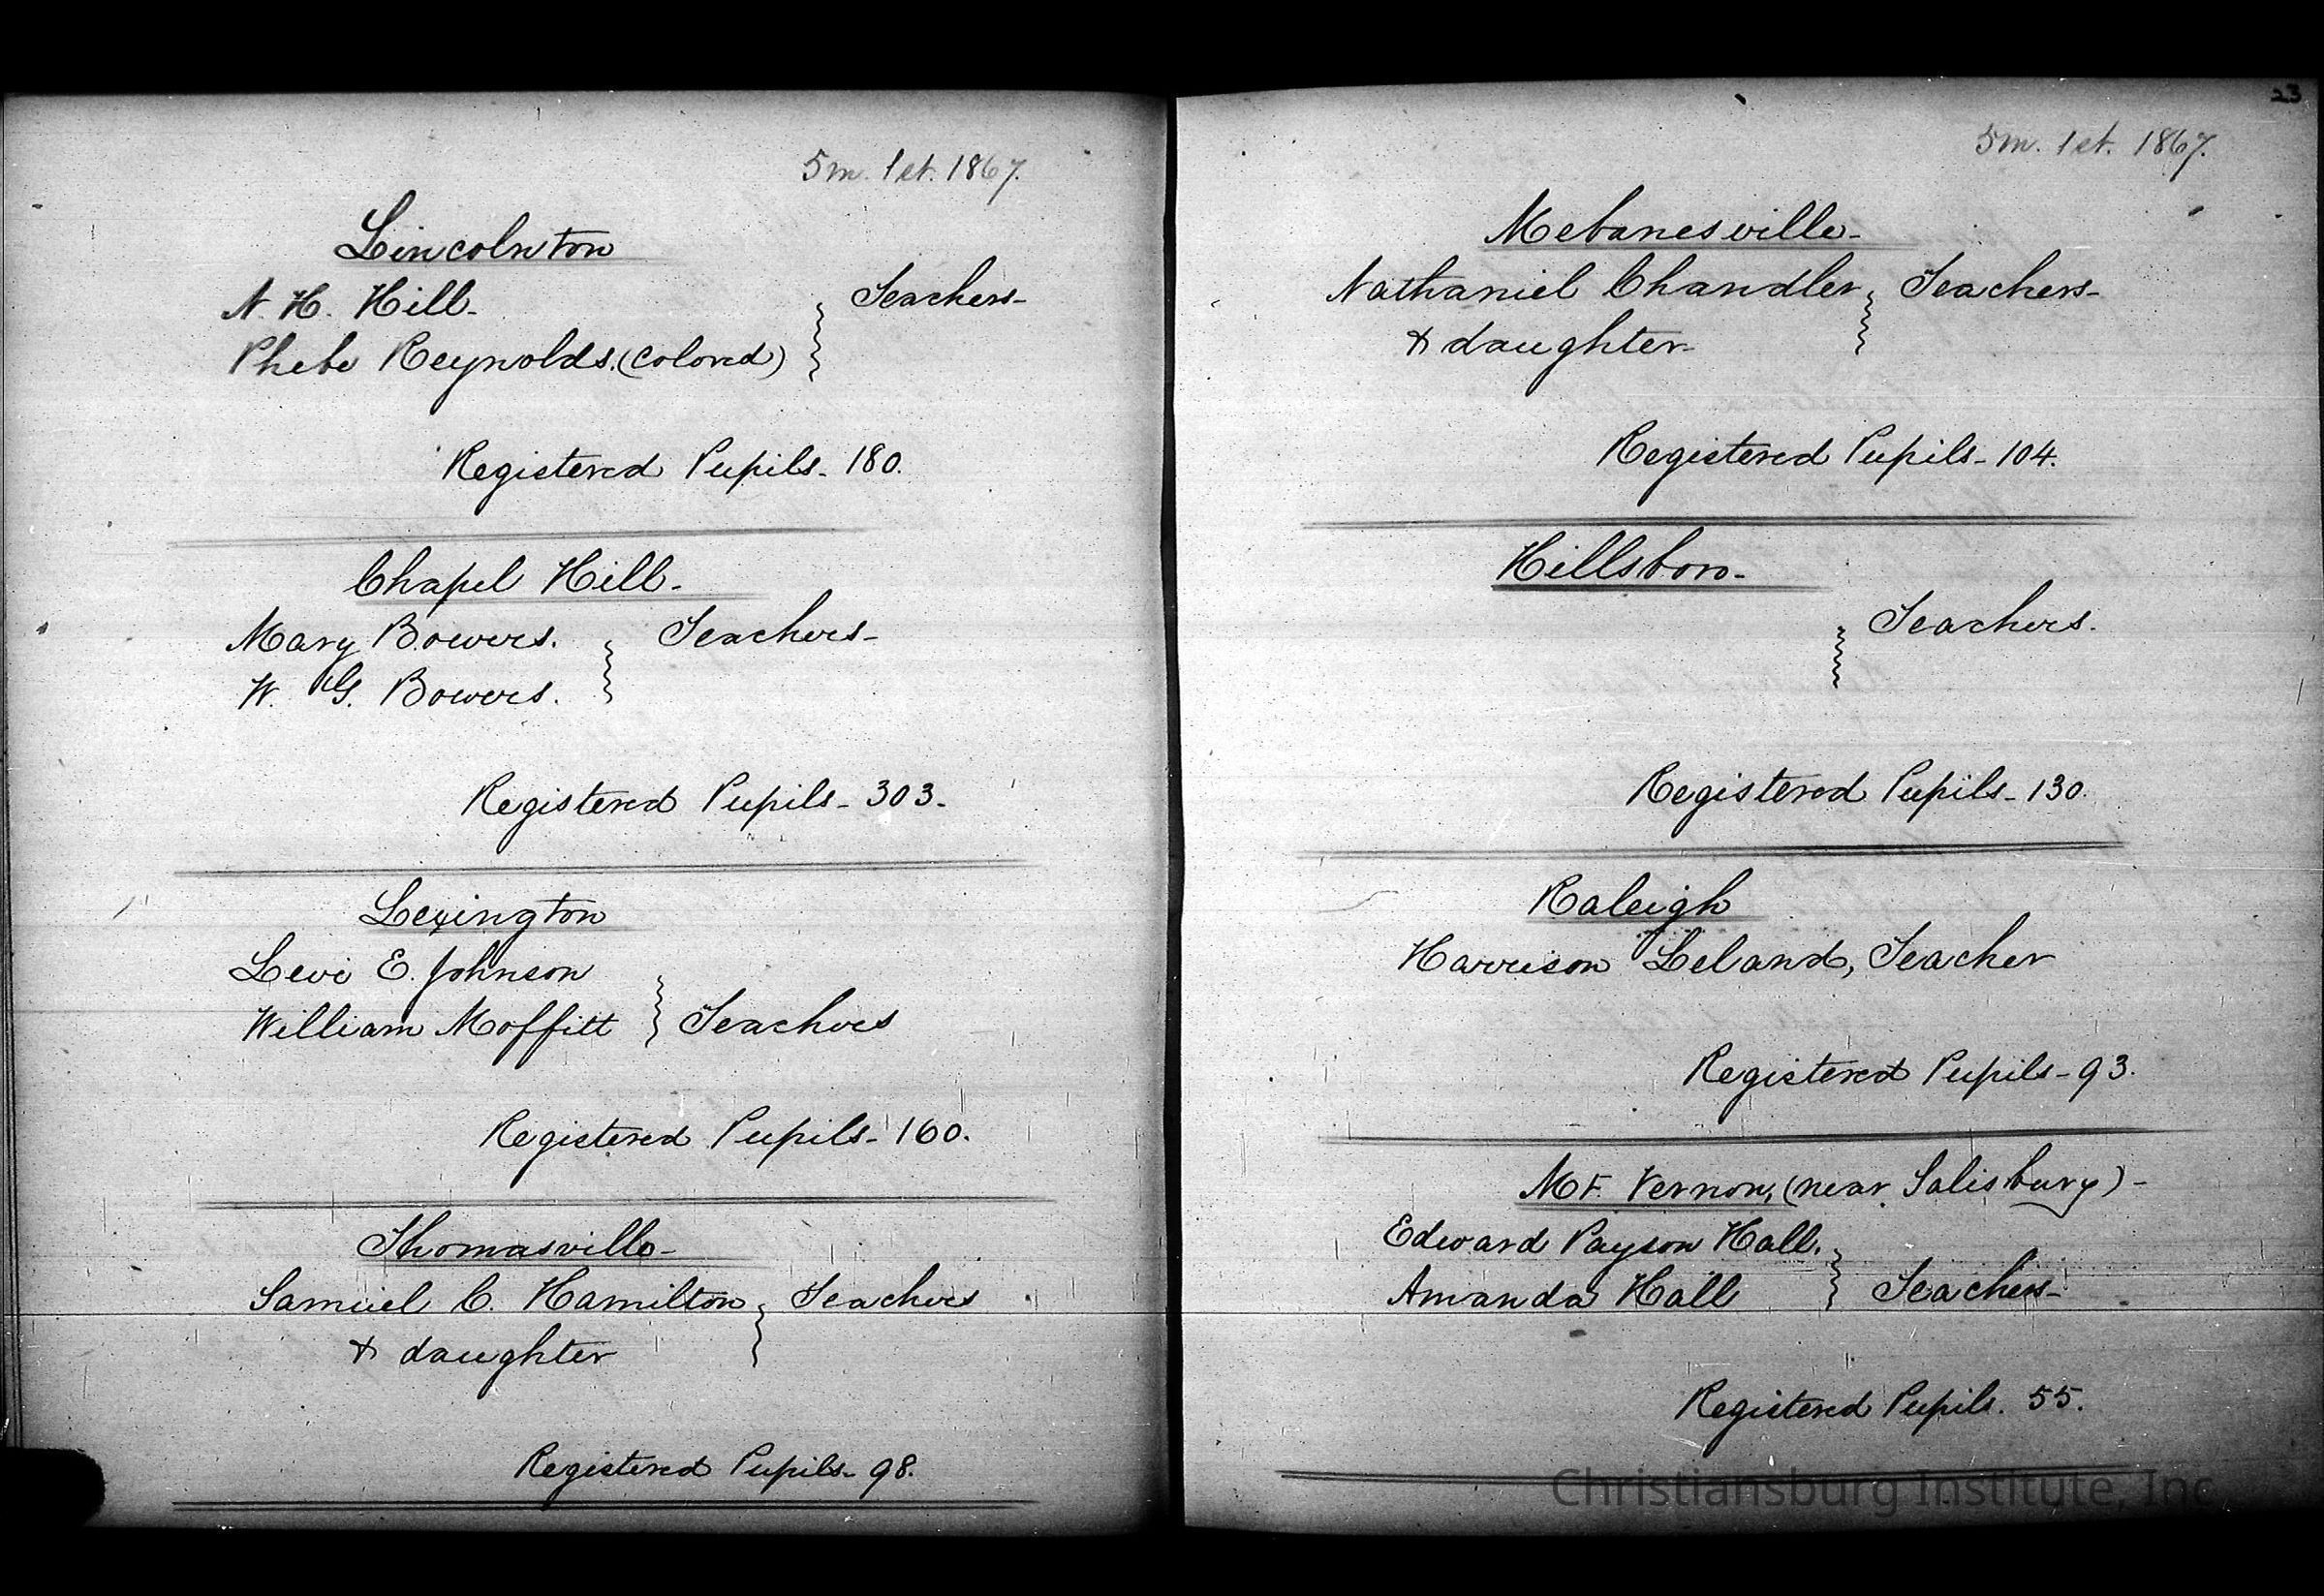 5m. 1st. 1867.
Lincolnton
N. H. Hill-
Phebe Reynolds. (colored)
Teachers-
Registered Pupils- 180.
Chapel Hill-
Mary Bowers.
W. G. Bowers.
Teachers-
Registered Pupils- 303-
Lexington
Levi E. Johnson
William Moffitt
Teachers
Registered Pupils- 160.
Thomasville-
Samuel C. Hamilton
& daughter
Teachers
Registered Pupils- 98.
23
5m. 1st. 1867.
Mebanesville-
Nathaniel Chandler
& daughter-
Teachers-
Registered Pupils- 104.
Hillsboro-
Teachers.
Registered Pupils- 130.
Raleigh
Harrison Leland, Teacher
Registered Pupils- 93.
Mt. Vernon, (near Salisbury)-
Edward Payson Hall.
Amanda Hall
Teachers-
Registered Pupils. 55.
Christiansburg Institute, Inc